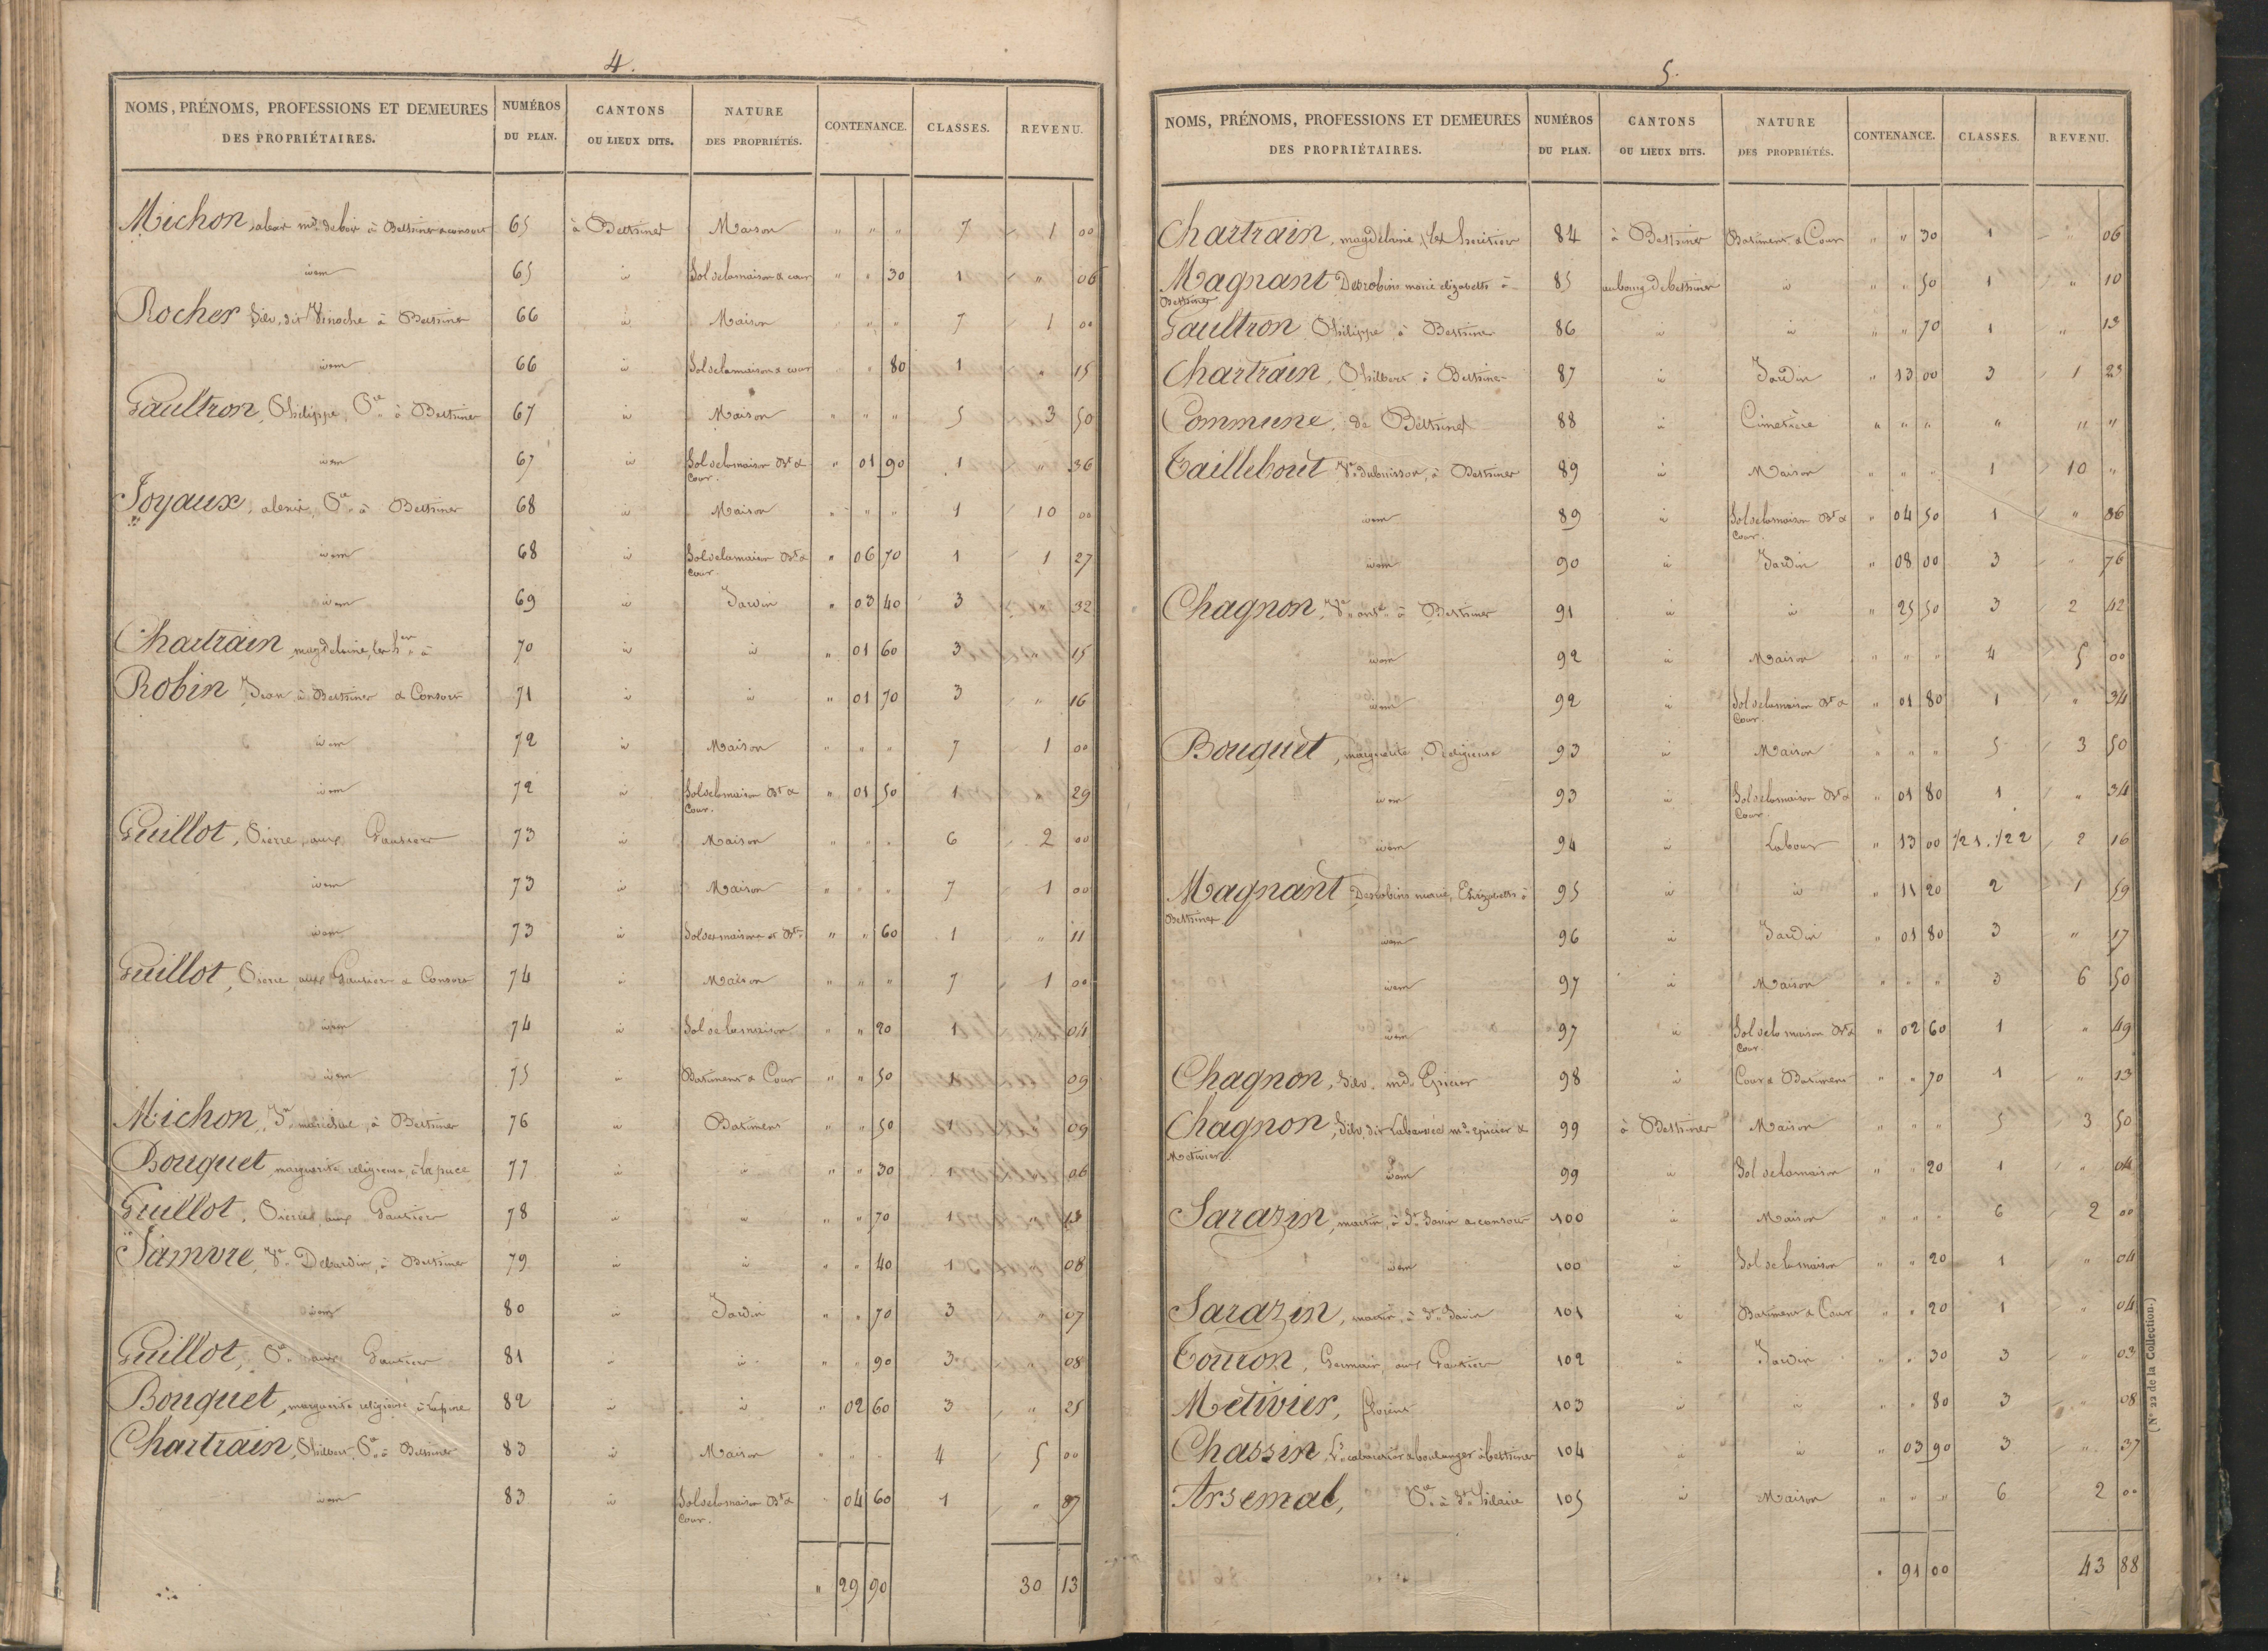 4.
NOMS, PRÉNOMS, PROFESSIONS ET DEMEURES DES PROPRIÉTAIRES. NUMÉROS DU PLAN. CANTONS OU LIEUX DITS. NATURE DES PROPRIÉTÉS. CONTENANCE. CLASSES. REVENU.
Michon, alexis md de bois à Bettinet & consort 65 à Bettinet Maison " " " 7 1 00
idem 65 id Sol de la maison & cour " " 30 1 " 06
Rocher Silv. dit à 66 id Maison " " " 7 1 00
idem 66 id Sol de la maison & cour " 80 1 " 15
Gaultron, Philippe, Pre à 67 id Maison " " " 5 3 50
idem 67 id Sol de la maison Bt & Cour. " 01 90 1 " 36
Joyaux, alexis, Pre à 68 id Maison " " " 1 10 00
idem 68 id Sol de la maison Bt & Cour. " 06 70 1 1 27
idem 69 id Jardin " 03 40 3 " 32
Chartrain magdelaine, les hers à 70 id id " 01 60 3 " 15
Robin Jean à & Consort 71 id id " 01 70 3 " 16
idem 72 id Maison " " " 7 1 00
idem 72 id Sol de la maison Bt & Cour. " 01 50 1 " 29
Guillot, Pierre, aux Gautier 73 id Maison " " " 6 2 00
idem 73 id Maison " " " 7 1 00
idem 73 id Sol des maisons & Bt " " 60 1 " 11
Guillot, Pierre aux Gautier & Consort 74 id Maison " " " 7 1 00
idem 74 id Sol de la maison " " 20 1 04
idem 75 id Batiment & Cour " " 50 1 09
Michon, à 76 id Batiment " " 50 1 09
Bouguet, marguerite religieuse, à 77 id id " " 30 1 06
Guillot, Pierre, aux Gautier 78 id id " " 70 1 " 13
Jamvre, Ve à 79 id id " " 40 1 08
idem 80 id Jardin " " 70 3 " 07
Guillot, Pre aux Gautier 81 id id " " 90 3 " 08
Bouguet, marguerite religieuse à 82 id id " 02 60 3 " 25
Chartrain, Philbert, Pre à 83 id Maison " " " 4 5 00
idem 83 id Sol de la maison Bt & Cour. " 04 60 1 " 87
" 29 90 30 13
5.
NOMS, PRÉNOMS, PROFESSIONS ET DEMEURES DES PROPRIÉTAIRES. NUMÉROS DU PLAN. CANTONS OU LIEUX DITS. NATURE DES PROPRIÉTÉS. CONTENANCE. CLASSES. REVENU.
Chartrain, magdelaine, les héritier 84 à Batiment & Cour " " 30 1 " 06
Magnant Desrobins marie elizabeth à 85 au bourg de id " " 50 1 " 10
Gaultron Philippe à 86 id id " " 70 1 " 13
Chartrain, Philbert à 87 id Jardin " 13 00 3 1 23
Commune, de 88 id Cimetière " " " " " "
Taillebout Ve dubuisson, à 89 id Maison " " " 1 10 "
idem 89 id Sol de la maison Bt & Cour. " 04 50 1 " 86
idem 90 id Jardin " 08 00 3 " 76
Chagnon, Ve à 91 id id " 25 50 3 2 42
idem 92 id Maison " " " 4 5 00
idem 92 id Sol de la maison Bt & Cour. " 01 80 1 " 34
Bouguet, marguerite, Religieuse 93 id Maison " " " 5 3 50
idem 93 id Sol de la maison Bt & Cour. " 01 80 1 " 34
idem 94 id Labour " 13 00 1/2 1. 1/2 2 2 16
Magnant Desrobins marie, Elizabeth à 95 id id " 11 20 2 1 59
idem 96 id Jardin " 01 80 3 " 17
idem 97 id Maison " " " 3 6 50
idem 97 id Sol de la maison Bt & Cour. " 02 60 1 " 49
Chagnon, Silv. md Epicier 98 id Cour & Batiment " " 70 1 " 13
Chagnon, Silv. dit md epicier & Metivier 99 à Maison " " " 5 3 50
idem 99 id Sol de la maison " " 20 1 " 04
Sarazin, martin, à St Savin & consort 100 id Maison " " " 6 2 00
idem 100 id Sol de la maison " " 20 1 " 04
Sarazin, martin, à St Savin 101 id Batiment & Cour " " 20 1 " 04
Touron, Germain, aux Gautier 102 id Jardin " " 30 3 " 03
Metivier, florent 103 id id " " 80 3 " 08
Chassin, cabaretier & boulanger à 104 id id " 03 90 3 " 37
Arsemal, Pre à St hilaire 105 id Maison " " " 6 2 00
" 91 00 43 88
(N° 22 de la Collection.)